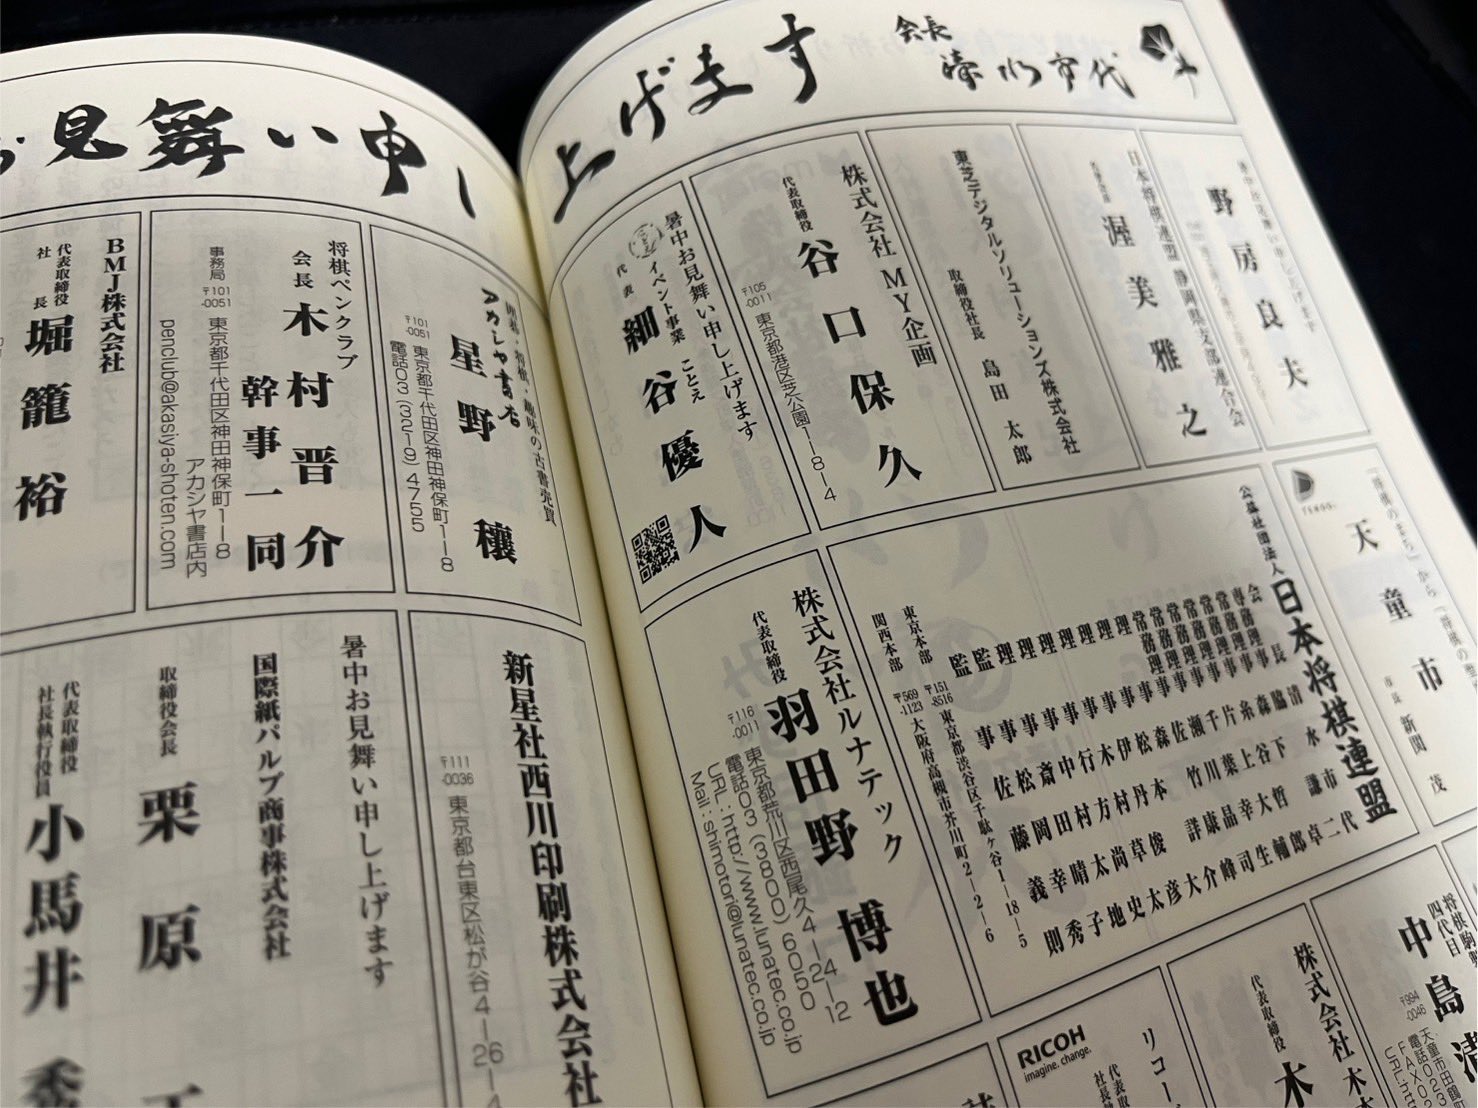 お見舞い申し上げます
会長
清水市代
暑中お見舞い申し上げます
野房良夫
日本将棋連盟 静岡県支部連合会
渥美雅之
東芝デジタルソリューションズ株式会社
取締役社長 島田太郎
株式会社 MY企画
代表取締役 谷口保久
〒105-0011 東京都港区芝公園1-8-4
暑中お見舞い申し上げます
イベント事業 ことえ
代表 細谷優人
「将棋のまち」から「将棋の
天童市
市長 新関 茂
公益社団法人 日本将棋連盟
会長 清水市代
専務理事 脇謙二
常務理事 森下卓
常務理事 糸谷哲郎
常務理事 片上大輔
常務理事 千葉幸生
常務理事 瀬川晶司
常務理事 佐竹康峰
理事 森詳介
理事 松本大
理事 伊丹俊彦
理事 木村草太
理事 行方尚史
理事 中村太地
理事 斎田晴子
監事 松岡幸秀
監事 佐藤義則
東京本部 〒151-8516 東京都渋谷区千駄ヶ谷1-18-5
関西本部 〒569-1123 大阪府高槻市芥川町2-2-6
株式会社ルナテック
代表取締役 羽田野博也
〒116-0011 東京都荒川区西尾久4-24-12
電話03(3800)6050
URL:http://www.lunatec.co.jp
Mail:shimotori@lunatec.co.jp
将棋駒
四代目
中島清
〒994-0046 天童市田鶴町
電話023
FAX02
URL:ht
株式会社 木
代表取締役 木
RICOH
imagine. change.
リコー
代表取
社長執
株
囲碁・将棋・趣味の古書売買
アカシヤ書店
星野穣
〒101-0051 東京都千代田区神田神保町1-8
電話03(3219)4755
将棋ペンクラブ
会長 木村晋介
幹事一同
事務局 〒101-0051 東京都千代田区神田神保町1-8
アカシヤ書店内
penclub@akasiya-shoten.com
BMJ株式会社
代表取締役社長 堀籠裕
新星社西川印刷株式会社
〒111-0036 東京都台東区松が谷4-26-4
暑中お見舞い申し上げます
国際紙パルプ商事株式会社
取締役会長 栗原
代表取締役社長執行役員 小馬井秀